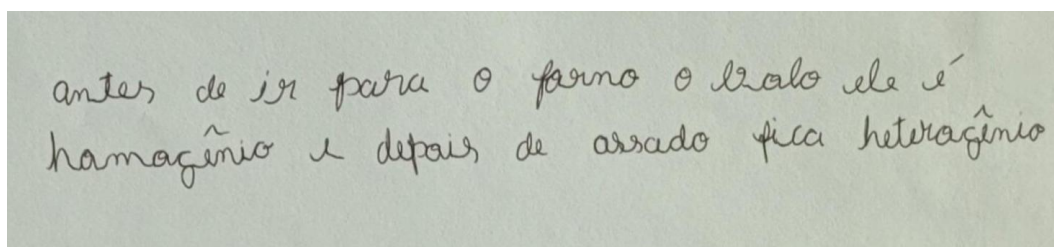 antes de ir para o forno o bolo ele é
homogênio e depois de assado fica heterogênio